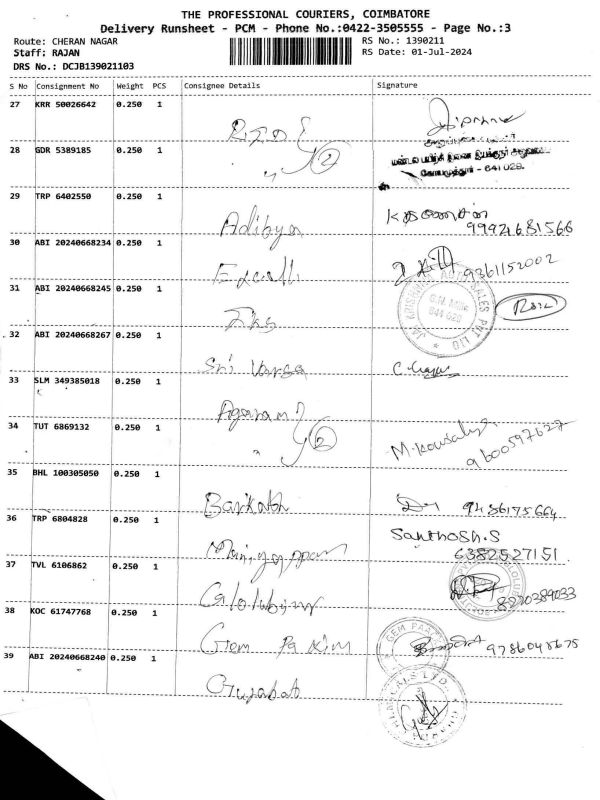 THE PROFESSIONAL COURIERS, COIMBATORE
Delivery Runsheet - PCM - Phone No.:0422-3505555 - Page No.:3
Route: CHERAN NAGAR
RS No.: 1390211
Staff: RAJAN
RS Date: 01-Jul-2024
DRS No.: DCJB139021103
S No Consignment No Weight PCS Consignee Details Signature
27 KRR 50026642 0.250 1
28 GDR 5389185 0.250 1
2
641 028
29 TRP 6402550 0.250 1
Adithya 99921681566
30 ABI 20240668234 0.250 1
9361152002
31 ABI 20240668245 0.250 1
G.N. Mills
641 029
32 ABI 20240668267 0.250 1
Sri Varsa
33 SLM 349385018 0.250 1
Agaram
34 TUT 6869132 0.250 1
2
M. Kowsalya
9600597627
35 BHL 100305050 0.250 1
Barkath 9486175664
36 TRP 6804828 0.250 1
Santhosh.S
6382527151
37 TVL 6106862 0.250 1
8220389033
38 KOC 61747768 0.250 1
Gem Pa 9786048675
39 ABI 20240668240 0.250 1
Gujarat